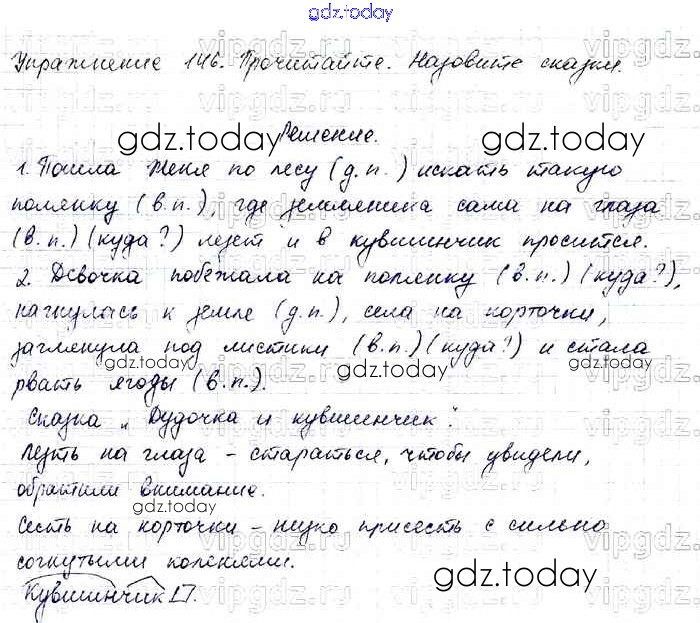 gdz.today
Упражнение 146. Прочитайте. Назовите сказки.
gdz.today gdz.today
Решение.
1. Пошла Женя по лесу (д.п.) искать такую
полянку (в.п.), где земляника сама на глаза
(в.п.) (куда?) лезет и в кувшинчик просится.
2. Девочка побежала на полянку (в.п.) (куда?),
нагнулась к земле (д.п.), села на корточки,
заглянула под листики (в.п.) (куда?) и стала
рвать ягоды (в.п.).
gdz.today gdz.today
Сказка „Дудочка и кувшинчик".
Лезть на глаза - стараться, чтобы увидели,
обратили внимание.
Сесть на корточки - низко присесть с сильно
согнутыми коленями.
gdz.today
Кувшинчик
vipgdz.ru